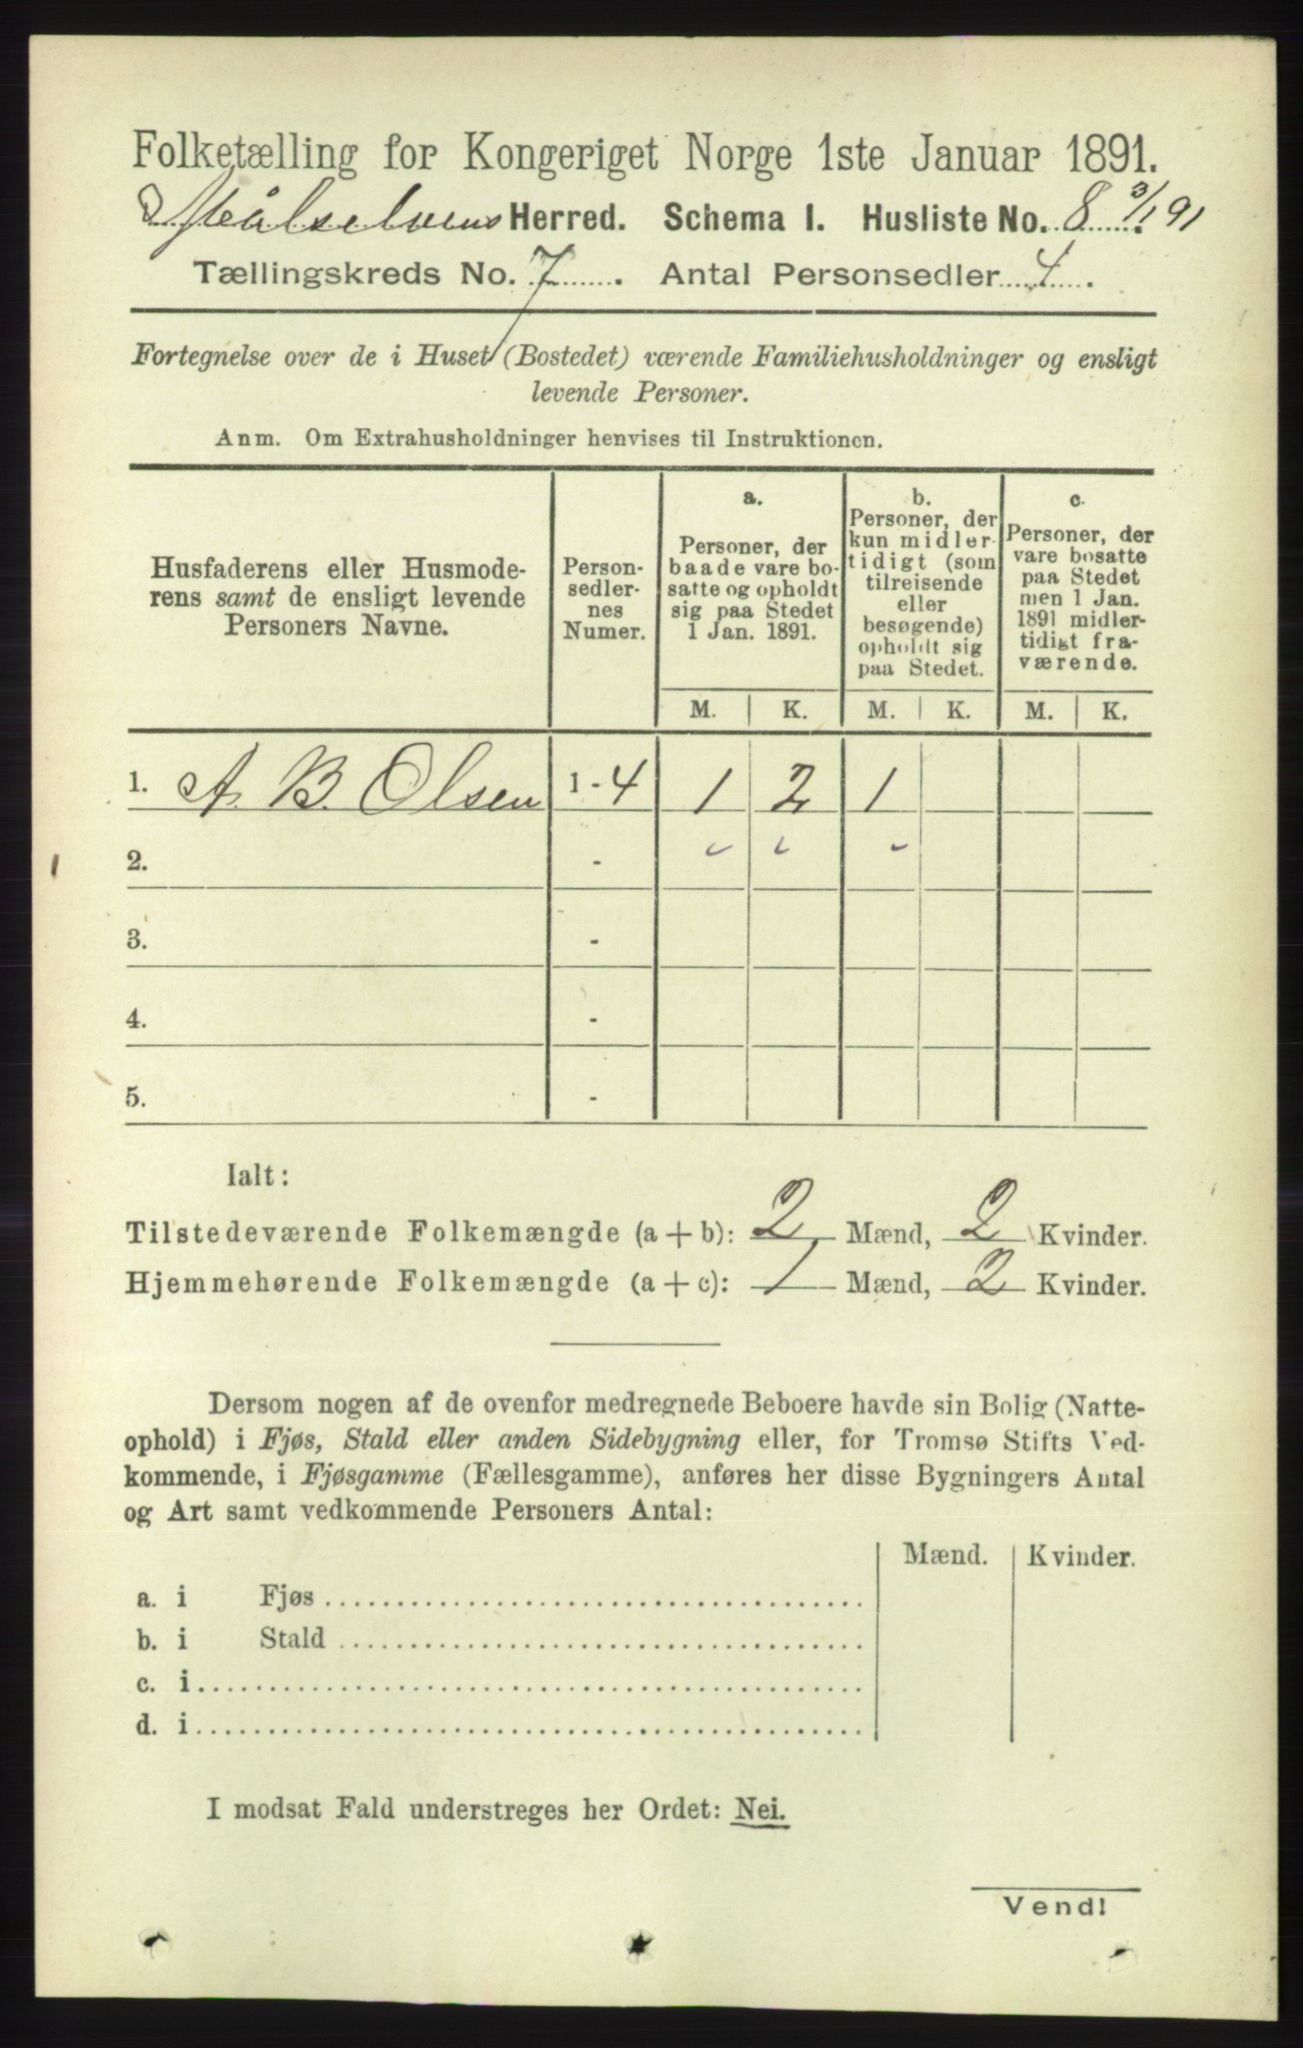 Folketælling for Kongeriget Norge 1ste Januar 1891.
Målselvens Herred. Schema I. Husliste No. 8 3/1 91
Tællingskreds No. 7. Antal Personsedler 4.
Fortegnelse over de i Huset (Bostedet) værende Familiehusholdninger og ensligt
levende Personer.
Anm. Om Extrahusholdninger henvises til Instruktionen.
Husfaderens eller Husmode-
rens samt de ensligt levende
Personers Navne.
Person-
sedler-
nes
Numer.
a.
Personer, der
baade vare bo-
satte og opholdt
sig paa Stedet
1 Jan. 1891.
b.
Personer, der
kun midler-
tidigt (som
tilreisende
eller
besøgende)
opholdt sig
paa Stedet.
c.
Personer, der
vare bosatte
paa Stedet
men 1 Jan.
1891 midler-
tidigt fra-
værende.
M. K. M. K. M. K.
1. A. B. Olsen 1 - 4 1 2 1
2. -
3. -
4. -
5. -
Ialt:
Tilstedeværende Folkemængde (a + b): 2 Mænd, 2 Kvinder.
Hjemmehørende Folkemængde (a + c): 1 Mænd, 2 Kvinder.
Dersom nogen af de ovenfor medregnede Beboere havde sin Bolig (Natte-
ophold) i Fjøs, Stald eller anden Sidebygning eller, for Tromsø Stifts Ved-
kommende, i Fjøsgamme (Fællesgamme), anføres her disse Bygningers Antal
og Art samt vedkommende Personers Antal:
Mænd. Kvinder.
a. i Fjøs
b. i Stald
c. i
d. i
I modsat Fald understreges her Ordet: Nei.
Vend!